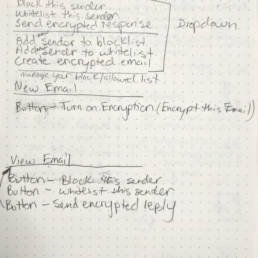 Block this sender
whitelist this sender
Send encrypted response
Dropdown
Add sender to blocklist
Add sender to whitelist
Create encrypted email
manage your block/allowed list
New Email
Button - Turn on Encryption (Encrypt this Email)
View Email
Button - Block this sender
Button - whitelist this sender
Button - Send encrypted reply